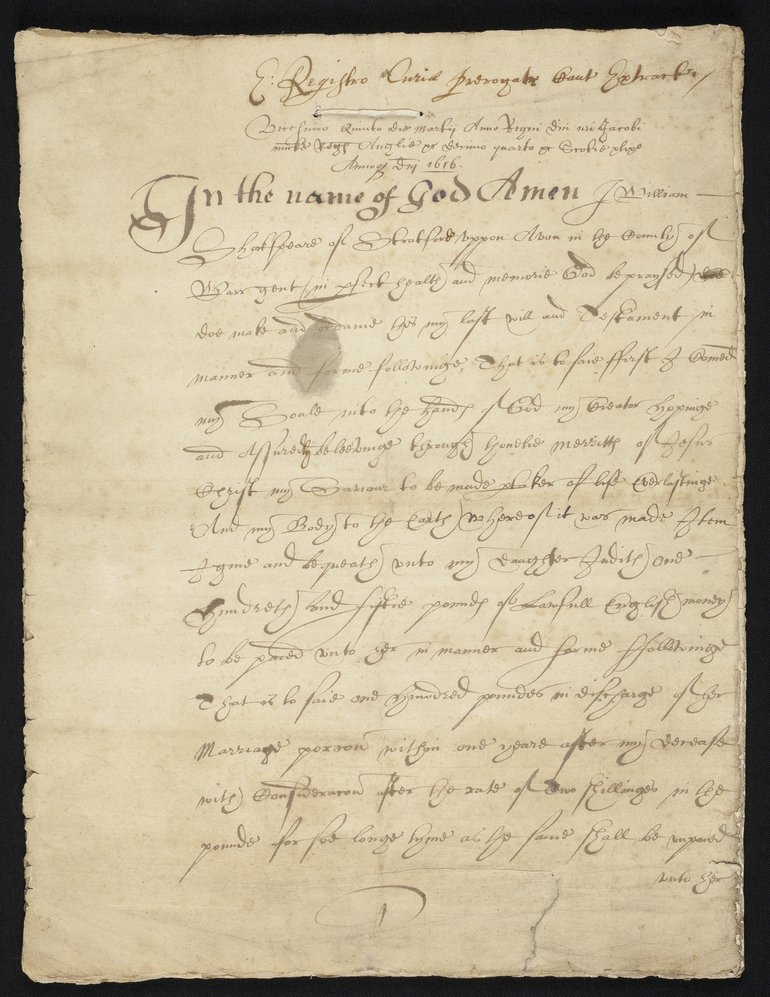 E: Registro Curiæ prerogatæ Cant Extract
Vicesimo Quinto die Martij Anno Regni dni nri Jacobi
nunc Regis Anglie &c decimo quarto & Scotie xlixo
Annoq, dnj 1616.
In the name of God Amen I William
Shakspeare of Stratford vppon Avon in the County of
Warr gent in pfect health and memorie God be praysed
doe make and ordaine this my last will and Testament in
manner and forme followinge, That is to saie ffirst I Comend
my Soule into the hands of God my Creator hoppinge
and Assuredly beleevinge through thonelie merritts of Jesus
Christ my Saviour to be made ptaker of life Everlastinge
And my Body to the Earth Whereof it was made Item
I giue and bequeath vnto my daughter Judith one
Hundreth And fiftie pounds of Lawfull English money
to be paied vnto her in manner and forme ffollowinge
That is to saie one Hundred poundes in discharge of her
Marriage porcon within one yeare after my decease
with Consideracon after the rate of Two shillinges in the
pounde for soe longe tyme as the same shall be vnpaied
vnto her
1